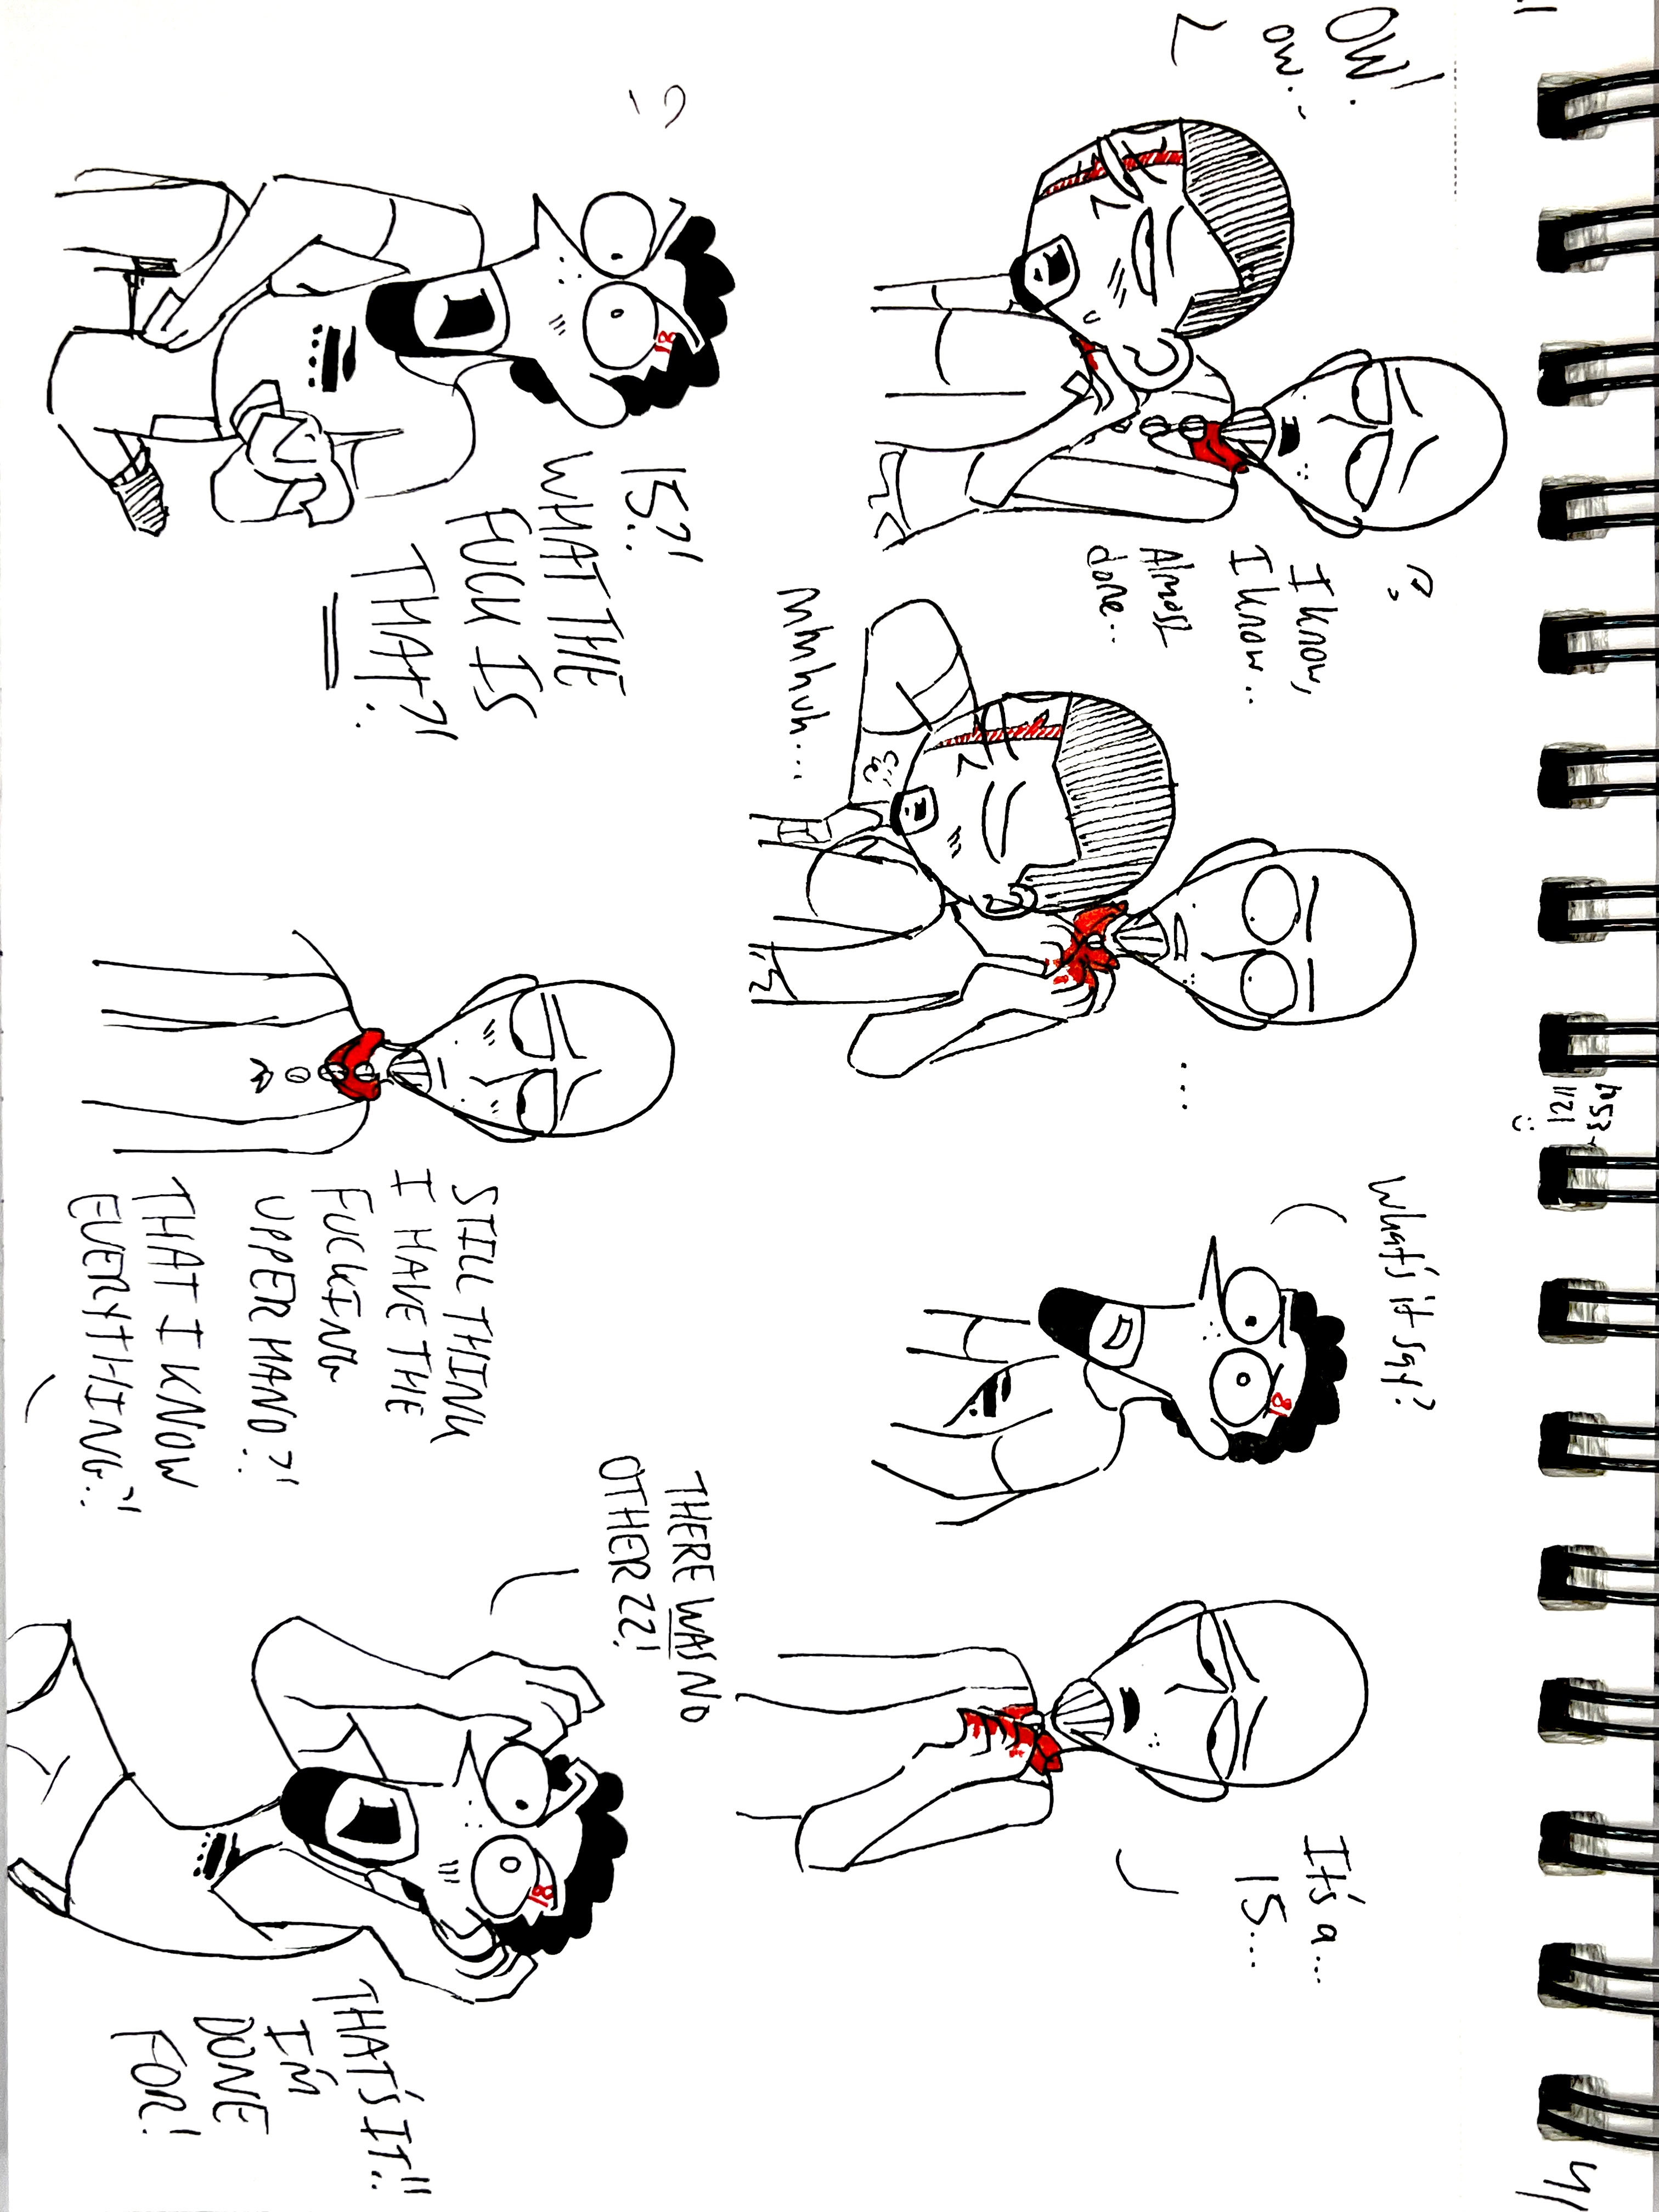 1053-
1121
OW!
OW..
I know,
I know..
Almost
done..
...
Mmhuh...
What's it say?
81
It's a...
15...
81
15?!
WHAT THE
FUCK IS
THAT?!
STILL THINK
I HAVE THE
FUCKING
UPPER HAND?!
THAT I KNOW
EVERYTHING?!
THERE WAS NO
OTHER 22!
81
THAT'S IT!!
I'M
DONE
FOR!